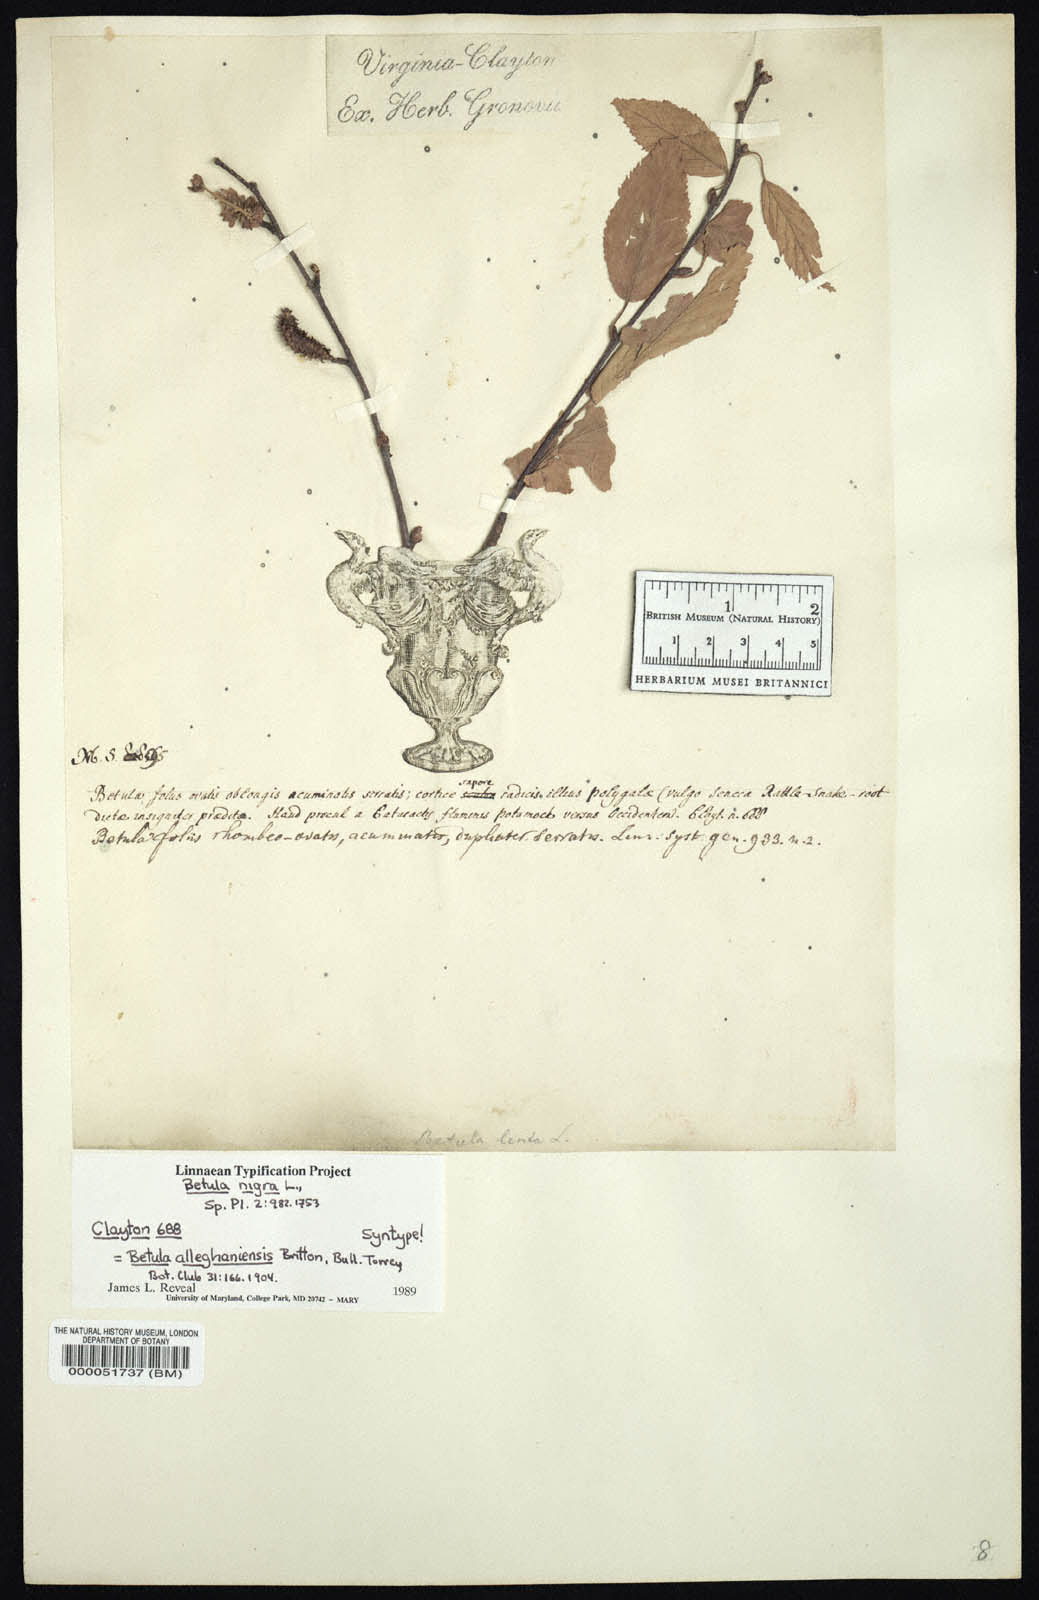 Virginia-Clayton
Ex. Herb. Gronovii
1 2
BRITISH MUSEUM (NATURAL HISTORY)
1 2 3 4 5
HERBARIUM MUSEI BRITANNICI
M. S.
Betula foliis ovatis oblongis acuminatis serratis; cortice sapore radicis illius polygalæ (vulgo Seneca Rattle-Snake-root
dictæ insigniter præditæ. Haud procul a Cataractis fluminis Potomock versus Occidentem. Clayt. n. 688
Betula foliis rhombeo-ovatis, acuminatis, duplicater serratis. Linn: Syst. gen. 933. n. 2.
Betula lenta L.
Linnaean Typification Project
Betula nigra L.,
Sp. Pl. 2:982.1753
Clayton 688
Syntype!
= Betula alleghaniensis Britton, Bull. Torrey
Bot. Club 31:166.1904.
James L. Reveal 1989
University of Maryland, College Park, MD 20742 – MARY
THE NATURAL HISTORY MUSEUM, LONDON
DEPARTMENT OF BOTANY
000051737 (BM)
8